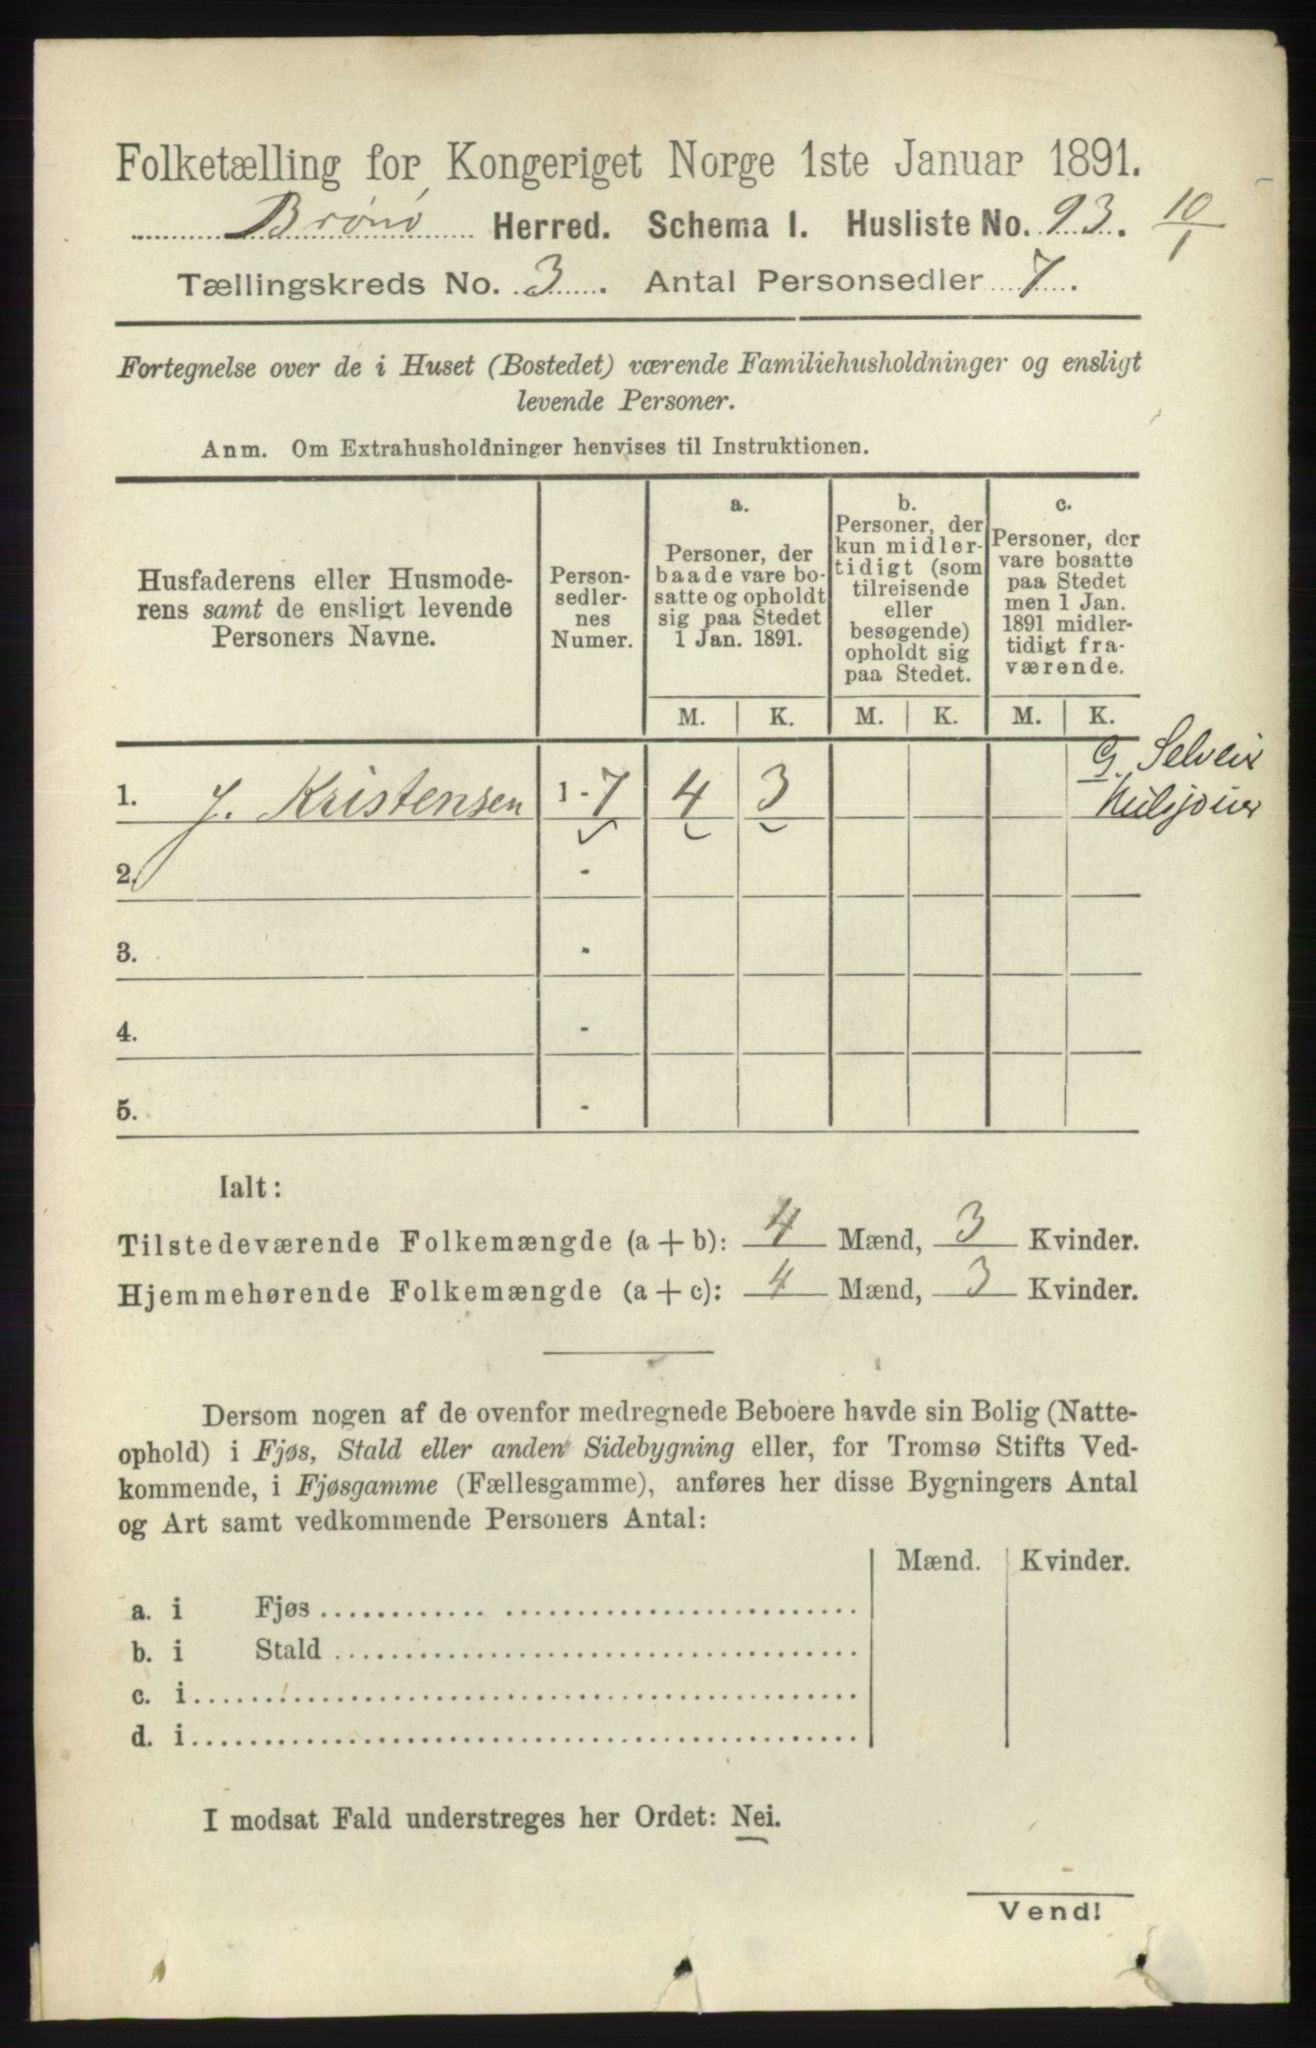 Folketælling for Kongeriget Norge 1ste Januar 1891.
Brønø Herred. Schema I. Husliste No. 93. 10/1
Tællingskreds No. 3. Antal Personsedler 7.
Fortegnelse over de i Huset (Bostedet) værende Familiehusholdninger og ensligt
levende Personer.
Anm. Om Extrahusholdninger henvises til Instruktionen.
Husfaderens eller Husmode-
rens samt de ensligt levende
Personers Navne.
Person-
sedler-
nes
Numer.
a.
Personer, der
baade vare bo-
satte og opholdt
sig paa Stedet
1 Jan. 1891.
b.
Personer, der
kun midler-
tidigt (som
tilreisende
eller
besøgende)
opholdt sig
paa Stedet.
c.
Personer, der
vare bosatte
paa Stedet
men 1 Jan.
1891 midler-
tidigt fra-
værende.
M. K. M. K. M. K.
G. Selveier
1. J. Kristensen 1 - 7 4 3
2. -
3. -
4. -
5. -
Ialt:
Tilstedeværende Folkemængde (a + b): 4 Mænd, 3 Kvinder.
Hjemmehørende Folkemængde (a + c): 4 Mænd, 3 Kvinder.
Dersom nogen af de ovenfor medregnede Beboere havde sin Bolig (Natte-
ophold) i Fjøs, Stald eller anden Sidebygning eller, for Tromsø Stifts Ved-
kommende, i Fjøsgamme (Fællesgamme), anføres her disse Bygningers Antal
og Art samt vedkommende Personers Antal:
Mænd. Kvinder.
a. i Fjøs
b. i Stald
c. i
d. i
I modsat Fald understreges her Ordet: Nei.
Vend!